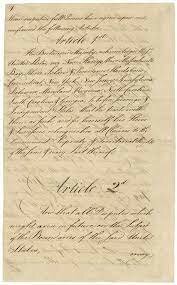 full Powers have agreed upon and
confirmed the following Articles.
Article 1st
His Britannic Majesty acknowledges the said
United States, viz. New Hampshire, Massachusetts
Bay, Rhode Island & Providence Plantations,
Connecticut, New York, New Jersey, Pennsylvania,
Delaware, Maryland, Virginia, North Carolina,
South Carolina & Georgia, to be free sovereign &
as such, and for himself his Heirs
& Successors, relinquishes all Claims to the
Government, Propriety & Territorial Rights
of the same & every Part thereof.
Article 2d
And that all Disputes which
might arise in future on the Subject
of the Boundaries of the said United
States,
may